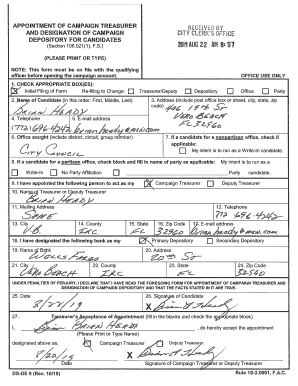 APPOINTMENT OF CAMPAIGN TREASURER
AND DESIGNATION OF CAMPAIGN
DEPOSITORY FOR CANDIDATES
(Section 106.021(1), F.S.)
(PLEASE PRINT OR TYPE)
RECEIVED BY
CITY CLERK'S OFFICE
2019 AUG 22 AM 8:57
NOTE: This form must be on file with the qualifying
officer before opening the campaign account.
OFFICE USE ONLY
1. CHECK APPROPRIATE BOX(ES):
Initial Filing of Form Re-filing to Change: Treasurer/Deputy Depository Office Party
2. Name of Candidate (in this order: First, Middle, Last)
BRIAN HEADY
3. Address (include post office box or street, city, state, zip
code)
VERO BEACH
FL 32960
4. Telephone 5. E-mail address
772 696 4242
6. Office sought (include district, circuit, group number)
CITY COUNCIL
7. If a candidate for a nonpartisan office, check if
applicable:
My intent is to run as a Write-In candidate.
8. If a candidate for a partisan office, check block and fill in name of party as applicable: My intent is to run as a
Write-In No Party Affiliation Party candidate.
9. I have appointed the following person to act as my Campaign Treasurer Deputy Treasurer
10. Name of Treasurer or Deputy Treasurer
BRIAN HEADY
11. Mailing Address
SAME
12. Telephone
772 696 4242
13. City 14. County 15. State 16. Zip Code 17. E-mail address
VB IRC FL 32960
18. I have designated the following bank as my Primary Depository Secondary Depository
19. Name of Bank
WELLS FARGO
20. Address
20th ST
21. City 22. County 23. State 24. Zip Code
VERO BEACH IRC FL 32960
UNDER PENALTIES OF PERJURY, I DECLARE THAT I HAVE READ THE FOREGOING FORM FOR APPOINTMENT OF CAMPAIGN TREASURER AND
DESIGNATION OF CAMPAIGN DEPOSITORY AND THAT THE FACTS STATED IN IT ARE TRUE.
25. Date
26. Signature of Candidate
X
27. Treasurer's Acceptance of Appointment (fill in the blanks and check the appropriate block)
I, BRIAN HEADY , do hereby accept the appointment
(Please Print or Type Name)
designated above as: Campaign Treasurer Deputy Treasurer.
8/22/19 X
Date Signature of Campaign Treasurer or Deputy Treasurer
DS-DE 9 (Rev. 10/10) Rule 1S-2.0001, F.A.C.